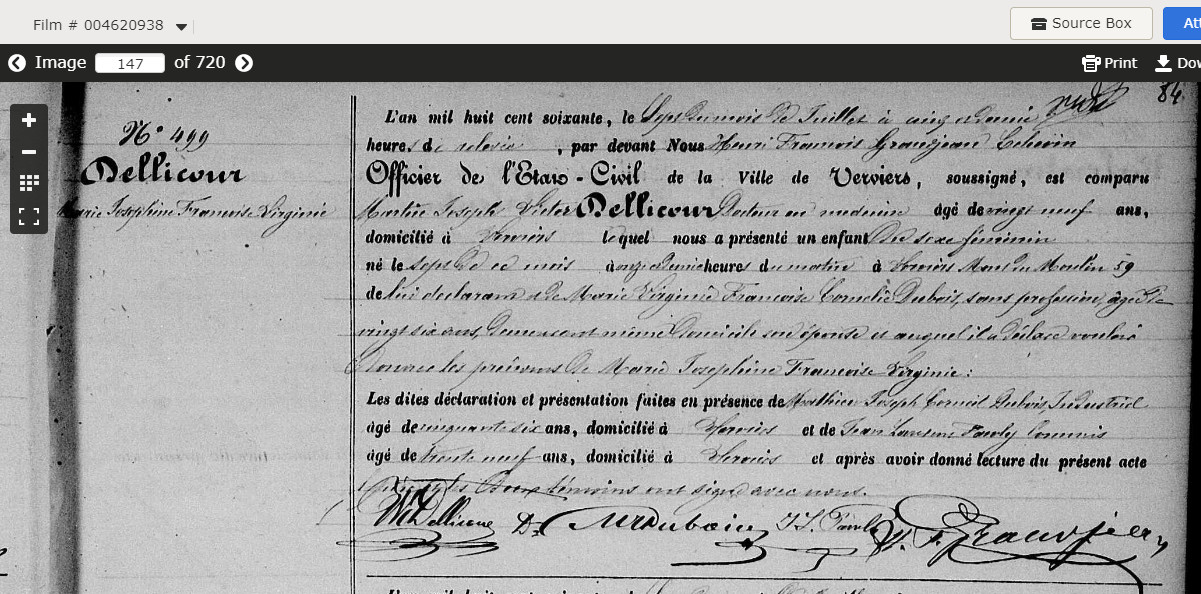 Film # 004620938
Source Box
Att
Image 147 of 720
Print
Dow
84
N° 499
Dellicour
Marie Josephine Francoise Virginie
L'an mil huit cent soixante, le Sept du mois de Juillet à cinq et demie
heures de relevée, par devant Nous Henri Francois Grandjean Echevin
Officier de l'Etat-Civil de la Ville de Verviers, soussigné, est comparu
Martin Joseph Victor Dellicour Docteur en medecine âgé de vingt neuf ans,
domicilié à Verviers lequel nous a présenté un enfant du sexe féminin
né le sept de ce mois à onze et demie heures du matin à Verviers Mont du Moulin 59
de lui déclarant et de Marie Virginie Francoise Cornelie Dubois, sans profession, âgée de
vingt six ans, demeurant même domicile son épouse et auquel il a déclaré vouloir
donner les prénoms de Marie Josephine Francoise Virginie:
Les dites déclaration et présentation faites en présence de Mathieu Joseph Corneil Dubois Industriel
âgé de cinquante six ans, domicilié à Verviers et de Jean Pauly Commis
âgé de trente neuf ans, domicilié à Verviers et après avoir donné lecture du présent acte
les deux témoins ont signé avec nous.
Dellicour Dr Dubois H. F. Grandjean